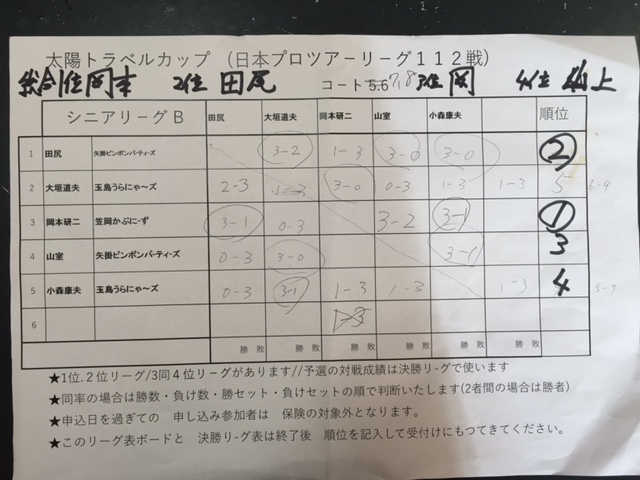 太陽トラベルカップ （日本プロツアーリーグ１１２戦）
総合1位岡本 2位 田尻 コート5.6 7,8 3位 岡 4位
シニアリーグB 田尻 大垣道夫 岡本研二 山室 小森康夫 順位
1 田尻 矢掛ピンポンパーティーズ 3-2 1-3 3-0 3-0 2
2 大垣道夫 玉島うらにゃ〜ズ 2-3 1-3 3-0 0-3 1-3 1-3 5 6-9
3 岡本研二 笠岡かぶに-ず 3-1 0-3 3-2 3-1 1
4 山室 矢掛ピンポンパーティーズ 0-3 3-0 3-1 3
5 小森康夫 玉島うらにゃ〜ズ 0-3 3-1 1-3 1-3 1-3 4 5-9
6 1-3
勝 敗 勝 敗 勝 敗 勝 敗 勝 敗 勝 敗
★1位.２位リーグ/3同４位リーグがあります//予選の対戦成績は決勝リ-グで使います
★同率の場合は勝数・負け数・勝セット・負けセットの順で判断いたします(2者間の場合は勝者)
★申込日を過ぎての 申し込み参加者は 保険の対象外となります。
★このリーグ表ボードと 決勝リ-グ表は終了後 順位を記入して受付けにもつてきてください。